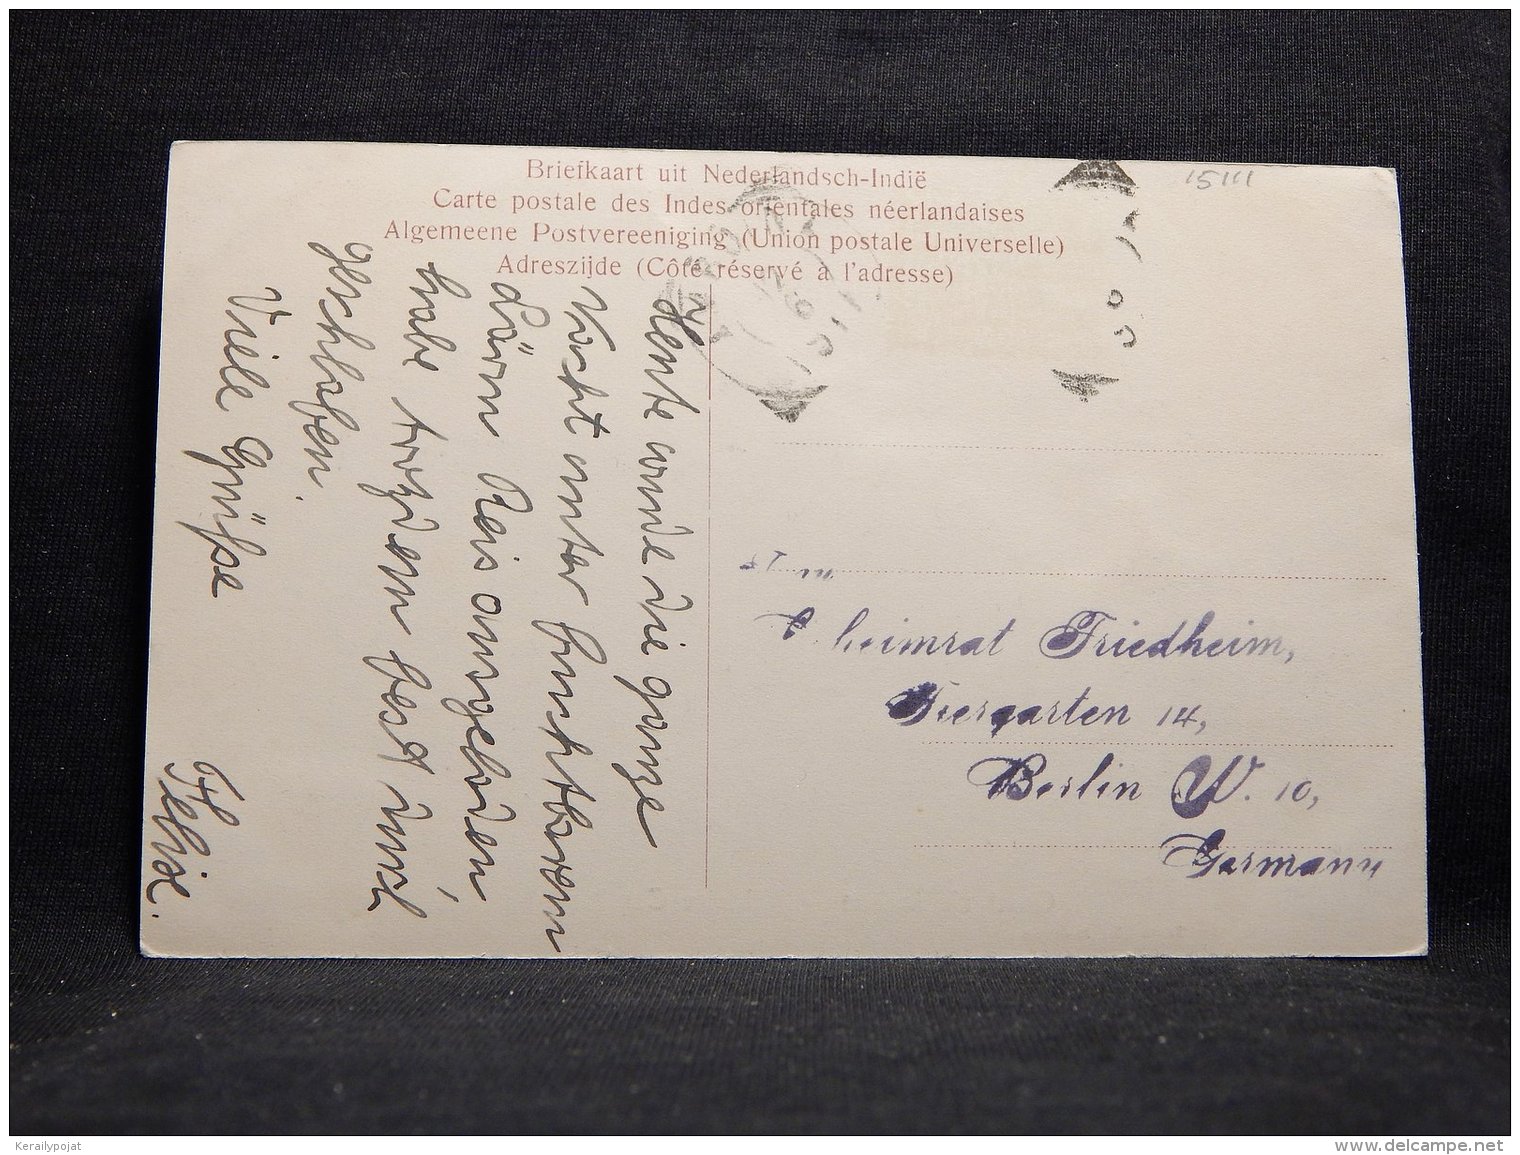 15111
Briefkaart uit Nederlandsch-Indië
Carte postale des Indes orientales néerlandaises
Algemeene Postvereeniging (Union postale Universelle)
Adreszijde (Côté réservé à l'adresse)
Heute wurde die ganze
Nacht unter furchtbarem
Lärm Reis eingeladen,
habe trozdem fest durch
geschlafen.
Viele Grüße
Felix.
Geheimrat Friedheim,
Tiergarten 14,
Berlin W. 10,
Germany
Kerailypojat
www.delcampe.net